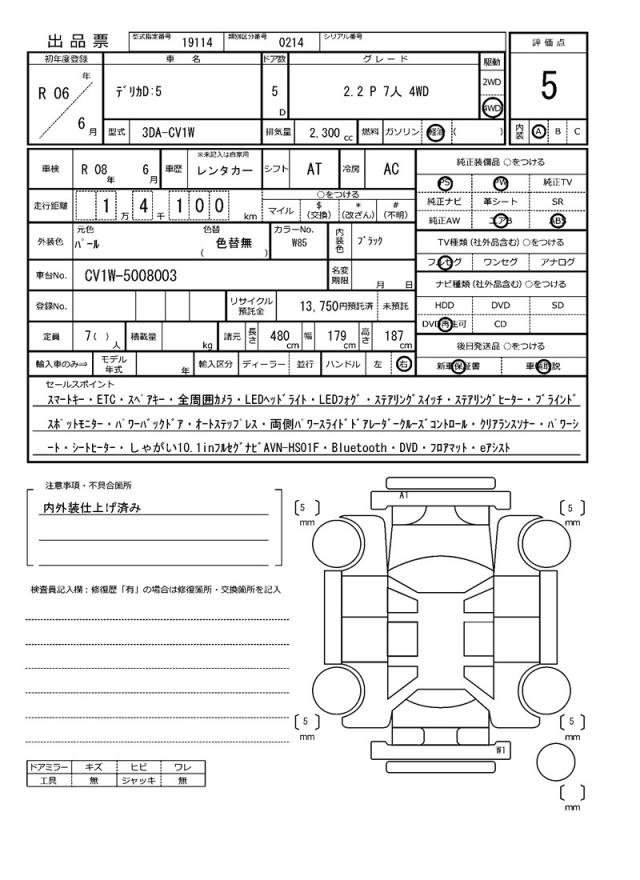 出品票 型式指定番号 19114 類別区分番号 0214 シリアル番号
初年度登録 車 名 ドア数 グレード 駆動 評価点
R 06 年 6 月 デリカD:5 5 D 2.2 P 7人 4WD 2WD 4WD 5
型式 3DA-CV1W 排気量 2,300 cc 燃料 ガソリン 軽油 ( ) 内装 A B C
車検 R 08 年 6 月 車歴 ※未記入は自家用 レンタカー シフト AT 冷房 AC
純正装備品 ○をつける
PS PW 純正TV
走行距離 1 万 4 千 1 0 0 km ○をつける マイル $ (交換) * (改ざん) # (不明)
純正ナビ 革シート SR
純正AW エアB ABS
外装色 元色 パール 色替 色替無 ( ) カラーNo. W85 内装色 ブラック
TV種類 (社外品含む) ○をつける
フルセグ ワンセグ アナログ
車台No. CV1W-5008003 名変期限 月 日
ナビ種類 (社外品含む) ○をつける
登録No. リサイクル預託金 13,750円預託済 未預託
HDD DVD SD
DVD再生可 CD
定員 7( ) 人 積載量 kg 諸元 長さ 480 cm 幅 179 cm 高さ 187 cm
後日発送品 ○をつける
輸入車のみ⇒ モデル年式 年 輸入区分 ディーラー 並行 ハンドル 左 右
新車保証書 車輌取説
セールスポイント
スマートキー・ETC・スペアキー・全周囲カメラ・LEDヘッドライト・LEDフォグ・ステアリングスイッチ・ステアリングヒーター・ブラインド
スポットモニター・パワーバックドア・オートステップレス・両側パワースライドドアレーダークルーズコントロール・クリアランスソナー・パワーシ
ート・シートヒーター・しゃがい10.1inフルセグナビAVN-HS01F・Bluetooth・DVD・フロアマット・eアシスト
注意事項・不具合箇所
内外装仕上げ済み
A1
5 mm
5 mm
検査員記入欄：修復歴「有」の場合は修復箇所・交換箇所を記入
5 mm
5 mm
W1
mm
ドアミラー キズ ヒビ ワレ
工具 無 ジャッキ 無